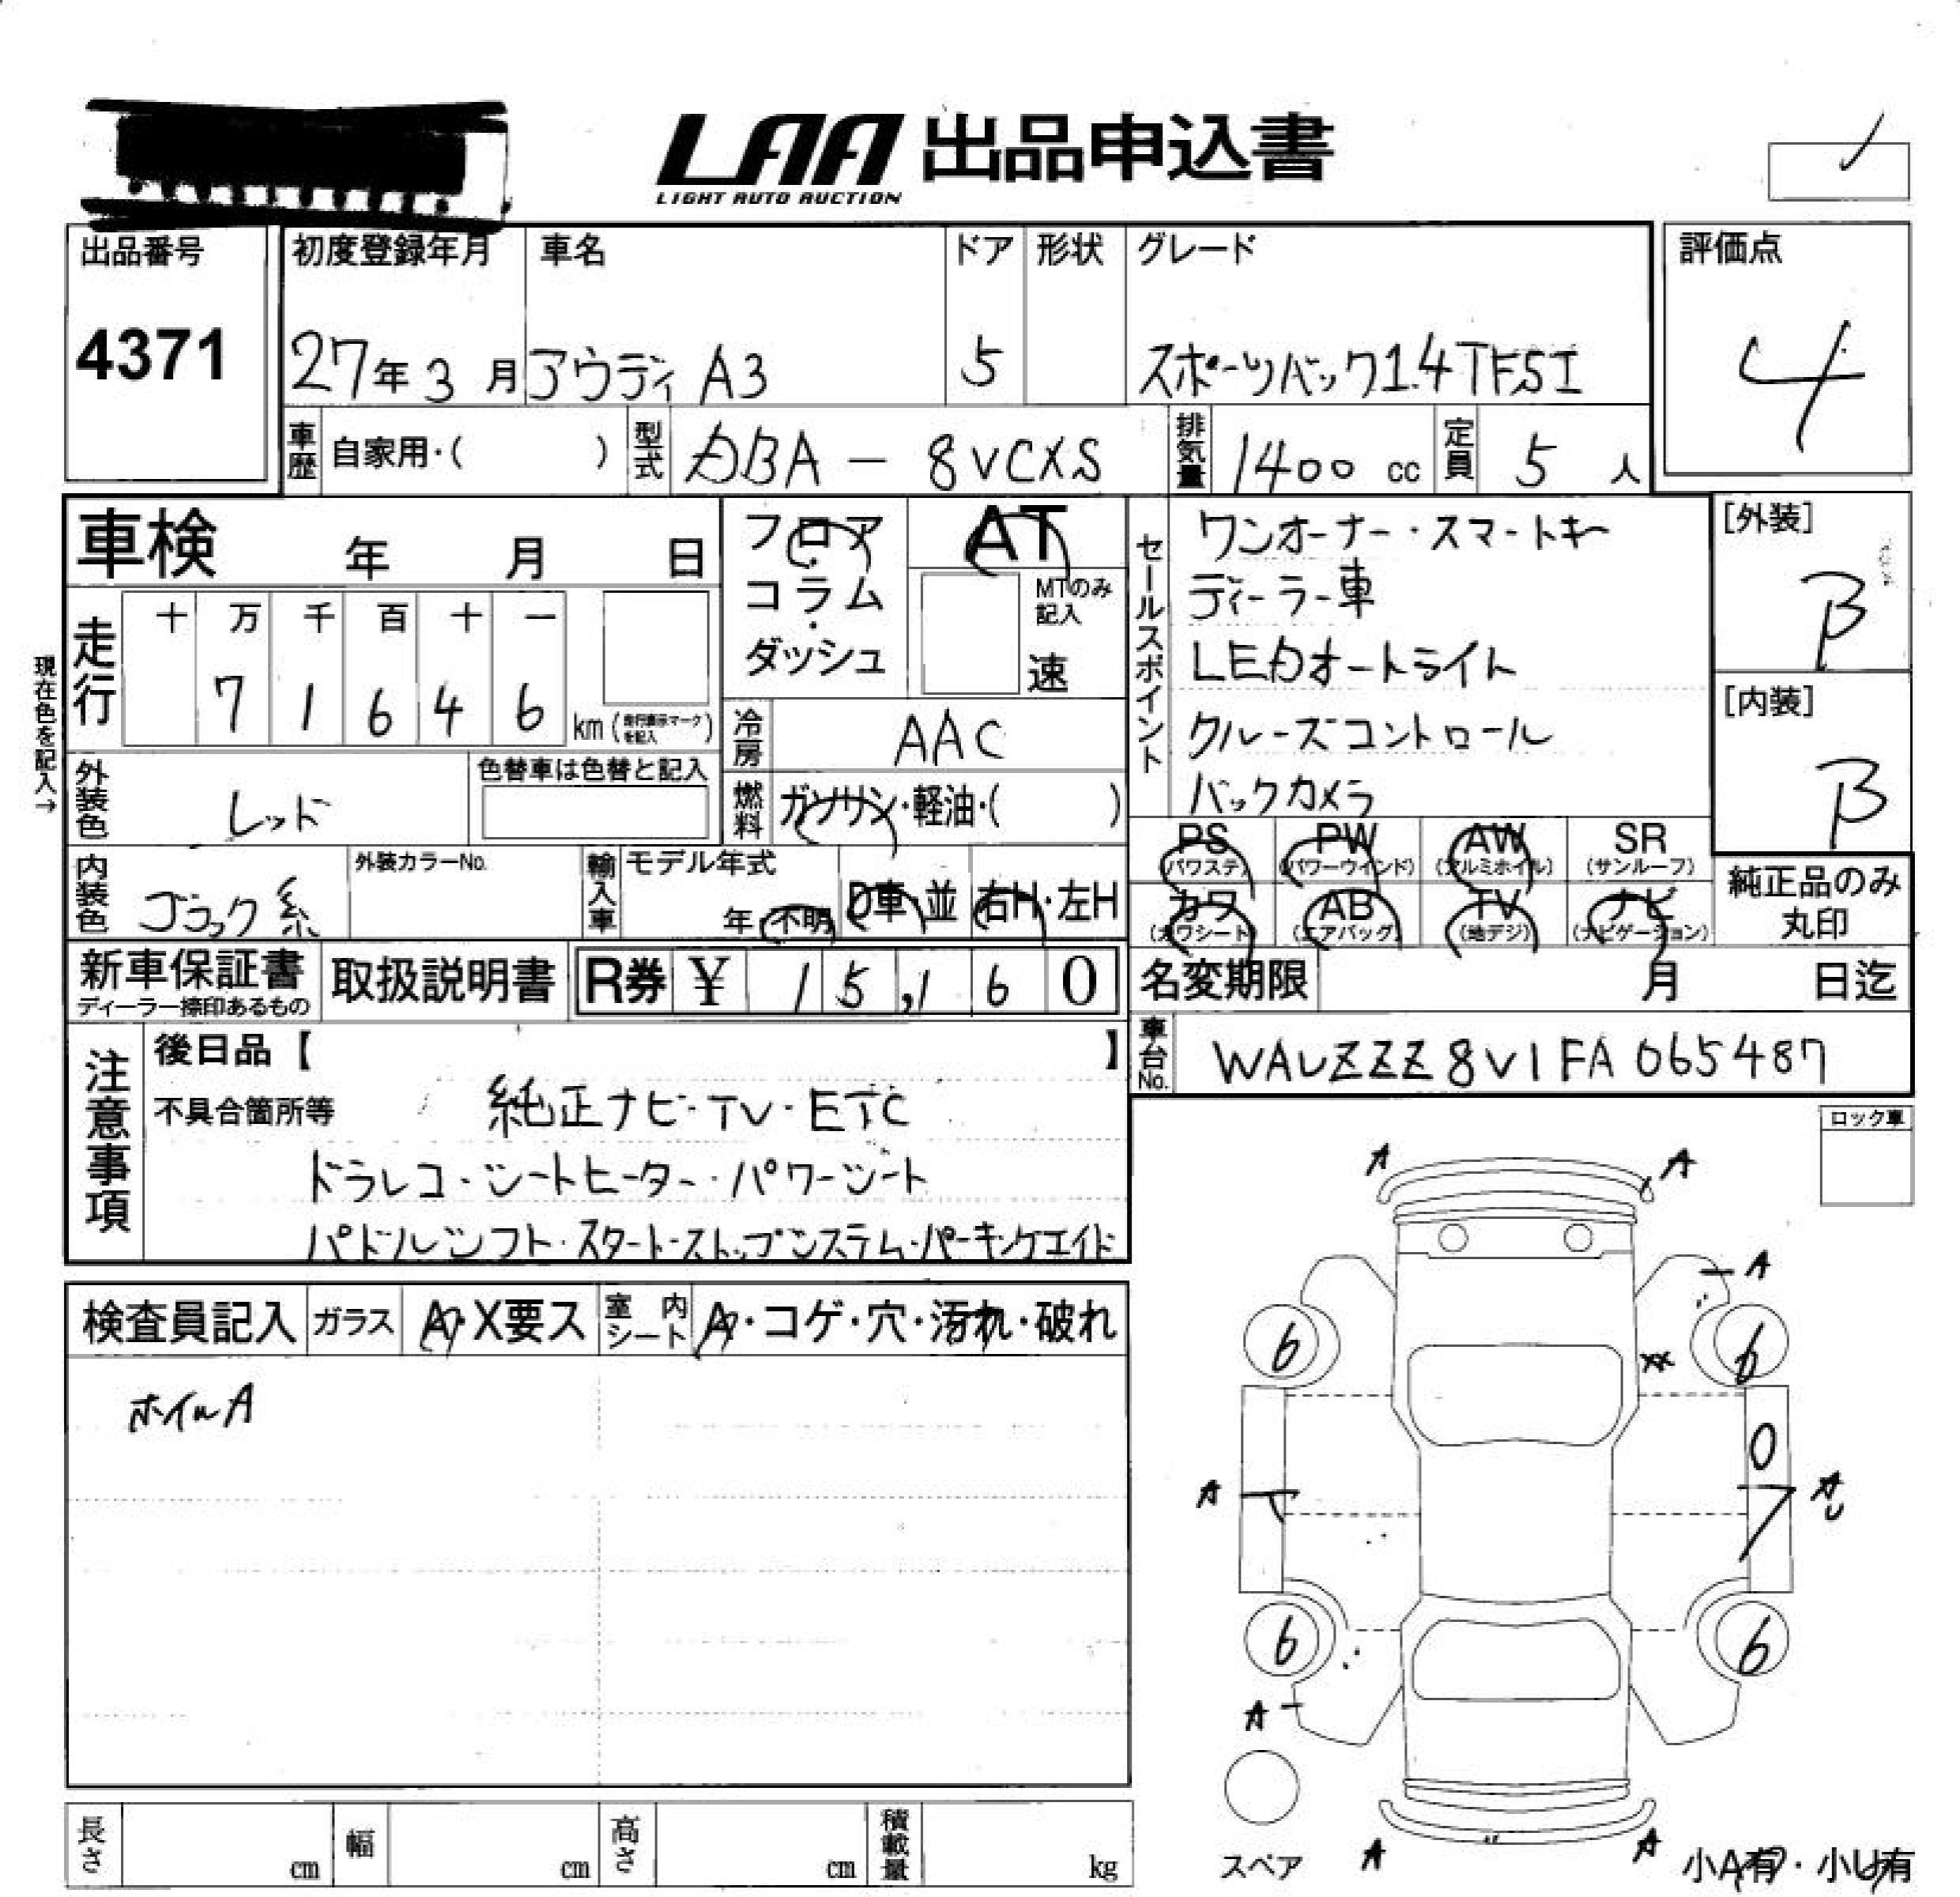 LAA 出品申込書
LIGHT AUTO AUCTION
出品番号 初度登録年月 車名 ドア 形状 グレード 評価点
4371 27年 3月 アウディ A3 5 スポーツバック1.4TFSI 4
車歴 自家用・( ) 型式 DBA - 8VCXS 排気量 1400 cc 定員 5 人
車検 年 月 日
フロア・コラム・ダッシュ
AT
MTのみ記入
速
セールスポイント
ワンオーナー・スマートキー
ディーラー車
LEDオートライト
クルーズコントロール
バックカメラ
[外装]
B
[内装]
B
現在色を記入→
走行 十 万 千 百 十 一
7 1 6 4 6 km (走行表示マークを記入)
冷房 AAC
外装色 レッド 色替車は色替と記入
燃料 ガソリン・軽油・( )
内装色 ブラック系 外装カラーNo. 輸入車 モデル年式 年・不明 D車・並 右H・左H
PS (パワステ) PW (パワーウィンド) AW (アルミホイル) SR (サンルーフ)
カワ (カワシート) AB (エアバッグ) TV (地デジ) ナビ (ナビゲーション)
純正品のみ丸印
新車保証書 ディーラー捺印あるもの 取扱説明書 R券 ¥ 15,160
名変期限 月 日迄
車台No. WAUZZZ8V1FA065487
注意事項
後日品【 】
不具合箇所等 純正ナビ・TV・ETC
ドラレコ・シートヒーター・パワーシート
パドルシフト・スタートストップシステム・パーキングエイド
ロック車
検査員記入 ガラス A・X要ス 室内シート A・コゲ・穴・汚れ・破れ
ホイルA
A A
A
6 6
XX
0
A A U
6 6
A
スペア A A 小A有・小U有
長さ cm 幅 cm 高さ cm 積載量 kg